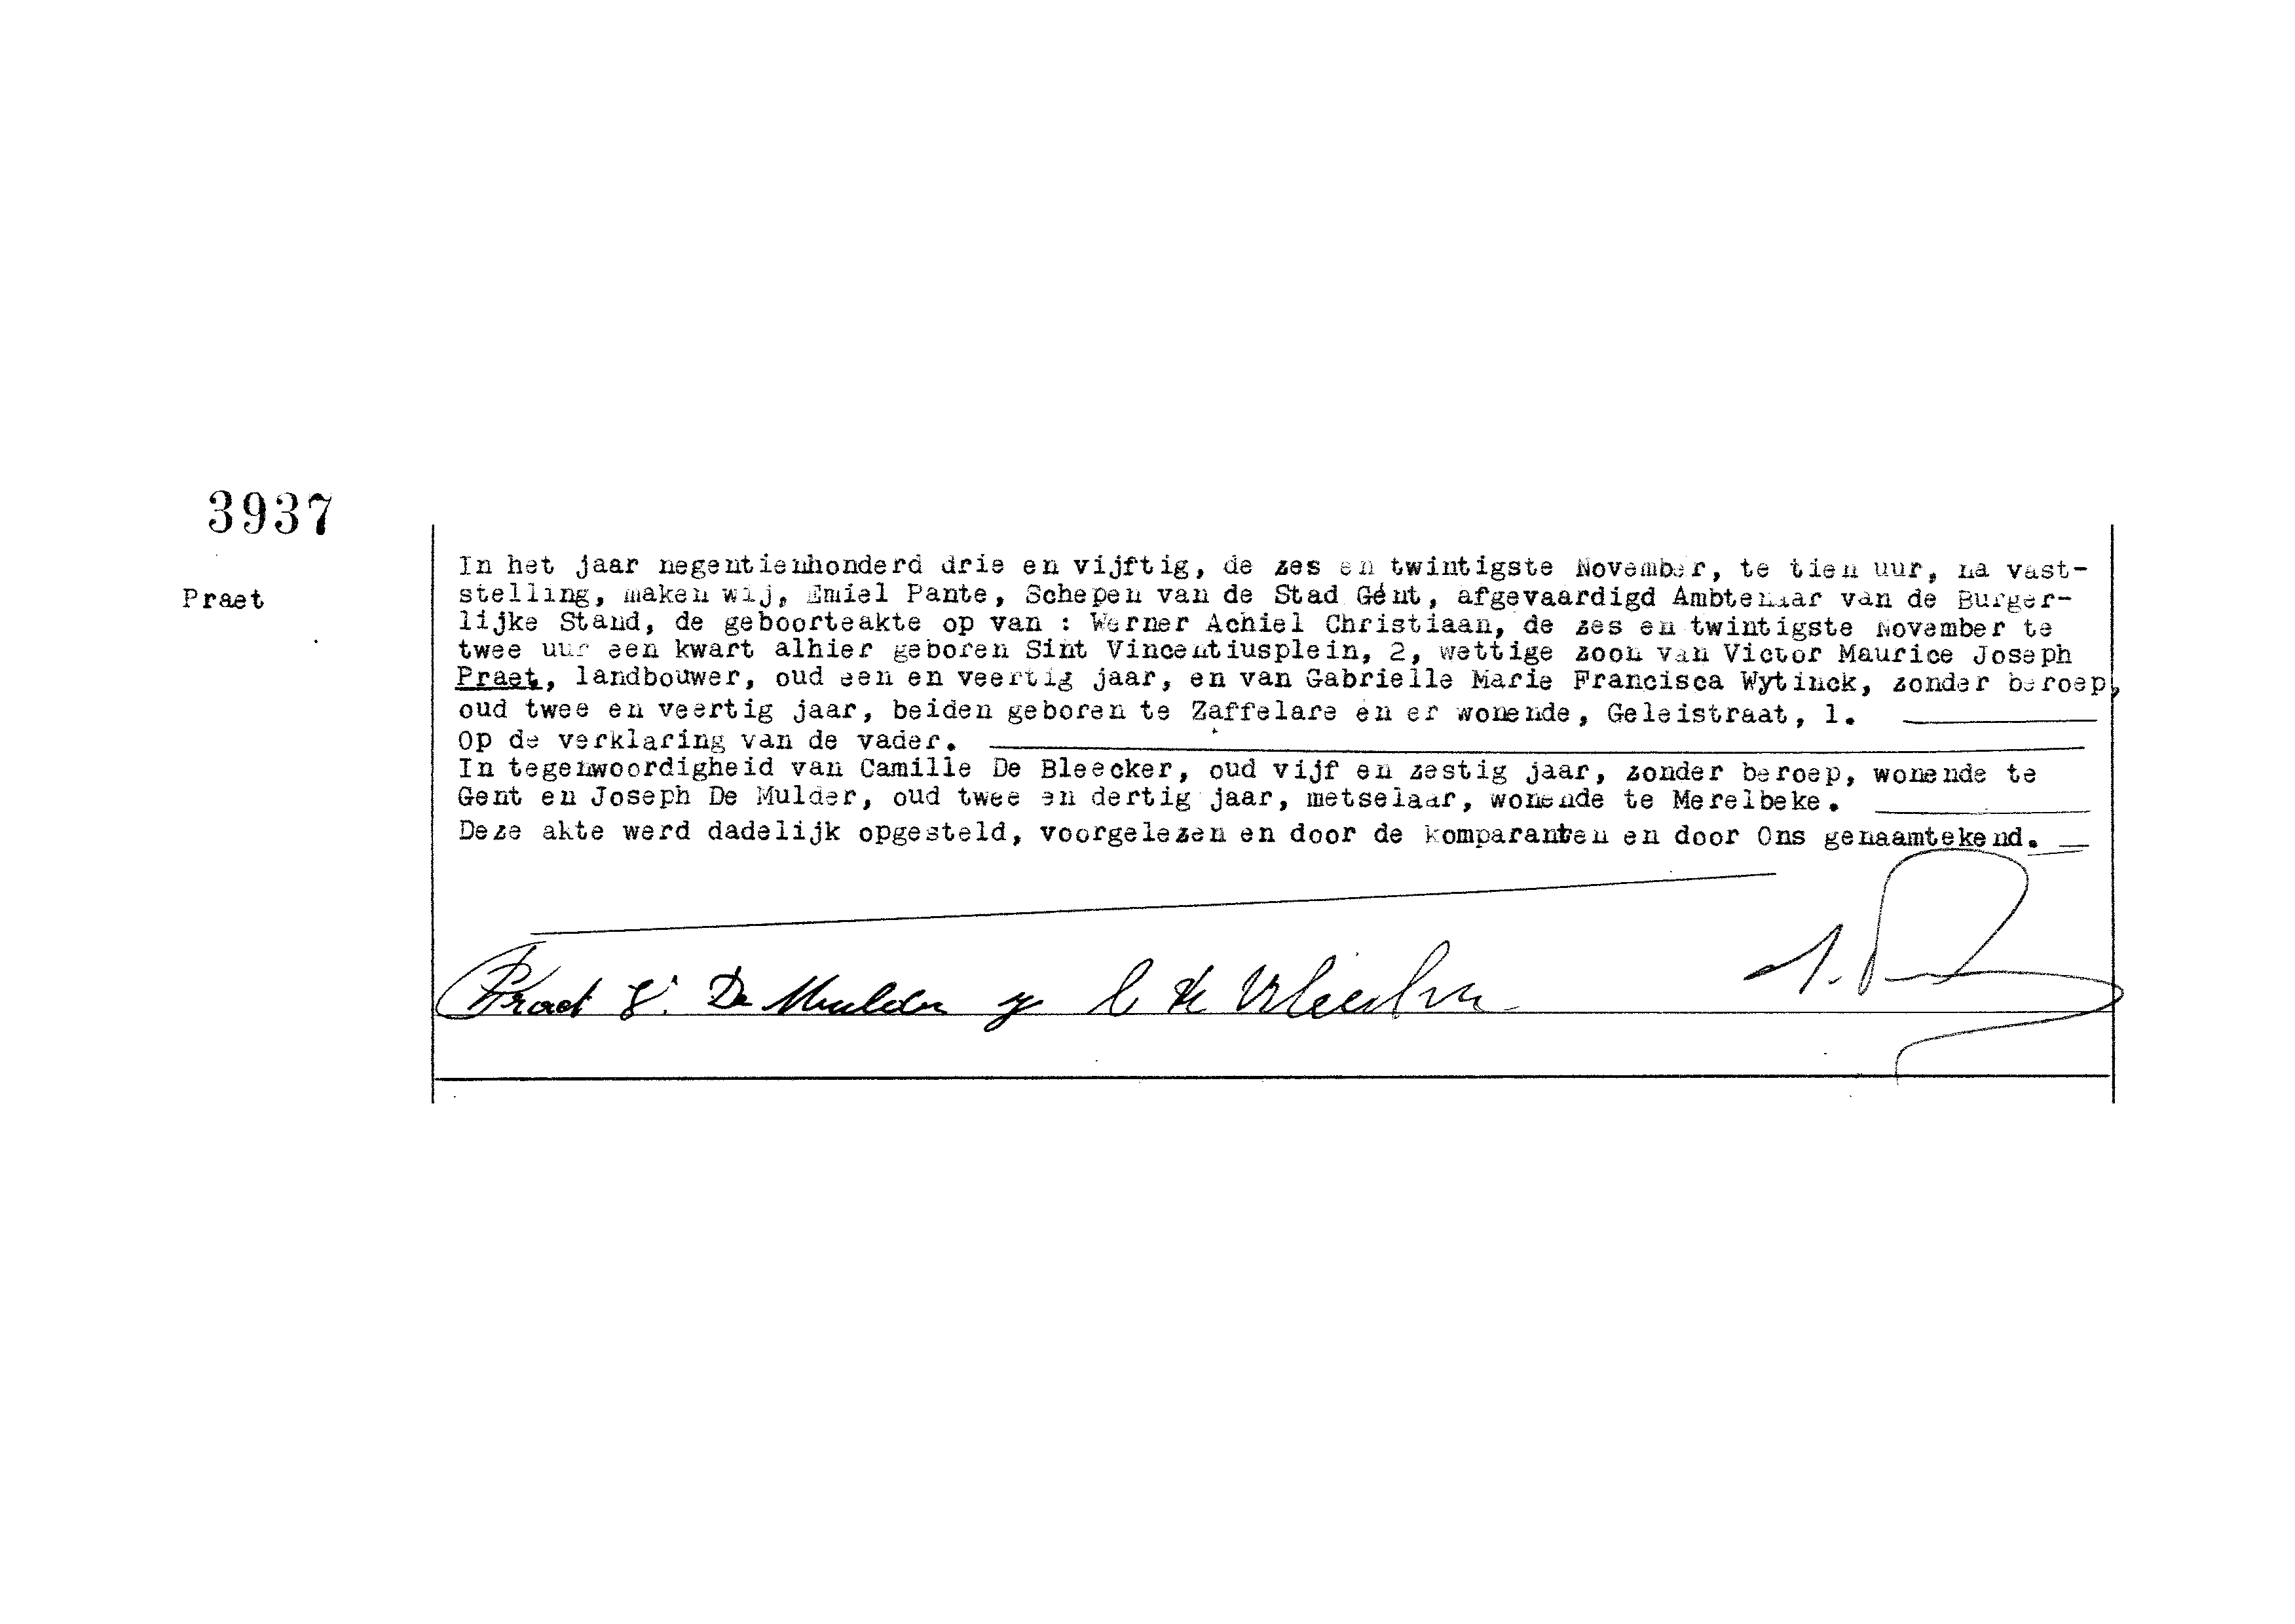 3937
Praet
In het jaar negentienhonderd drie en vijftig, de zes en twintigste November, te tien uur, na vast-
stelling, maken wij, Emiel Pante, Schepen van de Stad Gent, afgevaardigd Ambtenaar van de Burger-
lijke Stand, de geboorteakte op van : Werner Achiel Christiaan, de zes en twintigste November te
twee uur een kwart alhier geboren Sint Vincentiusplein, 2, wettige zoon van Victor Maurice Joseph
Praet, landbouwer, oud een en veertig jaar, en van Gabrielle Marie Francisca Wytinck, zonder beroep,
oud twee en veertig jaar, beiden geboren te Zaffelare en er wonende, Geleistraat, 1.
Op de verklaring van de vader.
In tegenwoordigheid van Camille De Bleecker, oud vijf en zestig jaar, zonder beroep, wonende te
Gent en Joseph De Mulder, oud twee en dertig jaar, metselaar, wonende te Merelbeke.
Deze akte werd dadelijk opgesteld, voorgelezen en door de komparanten en door Ons genaamtekend.
Praet De Mulder